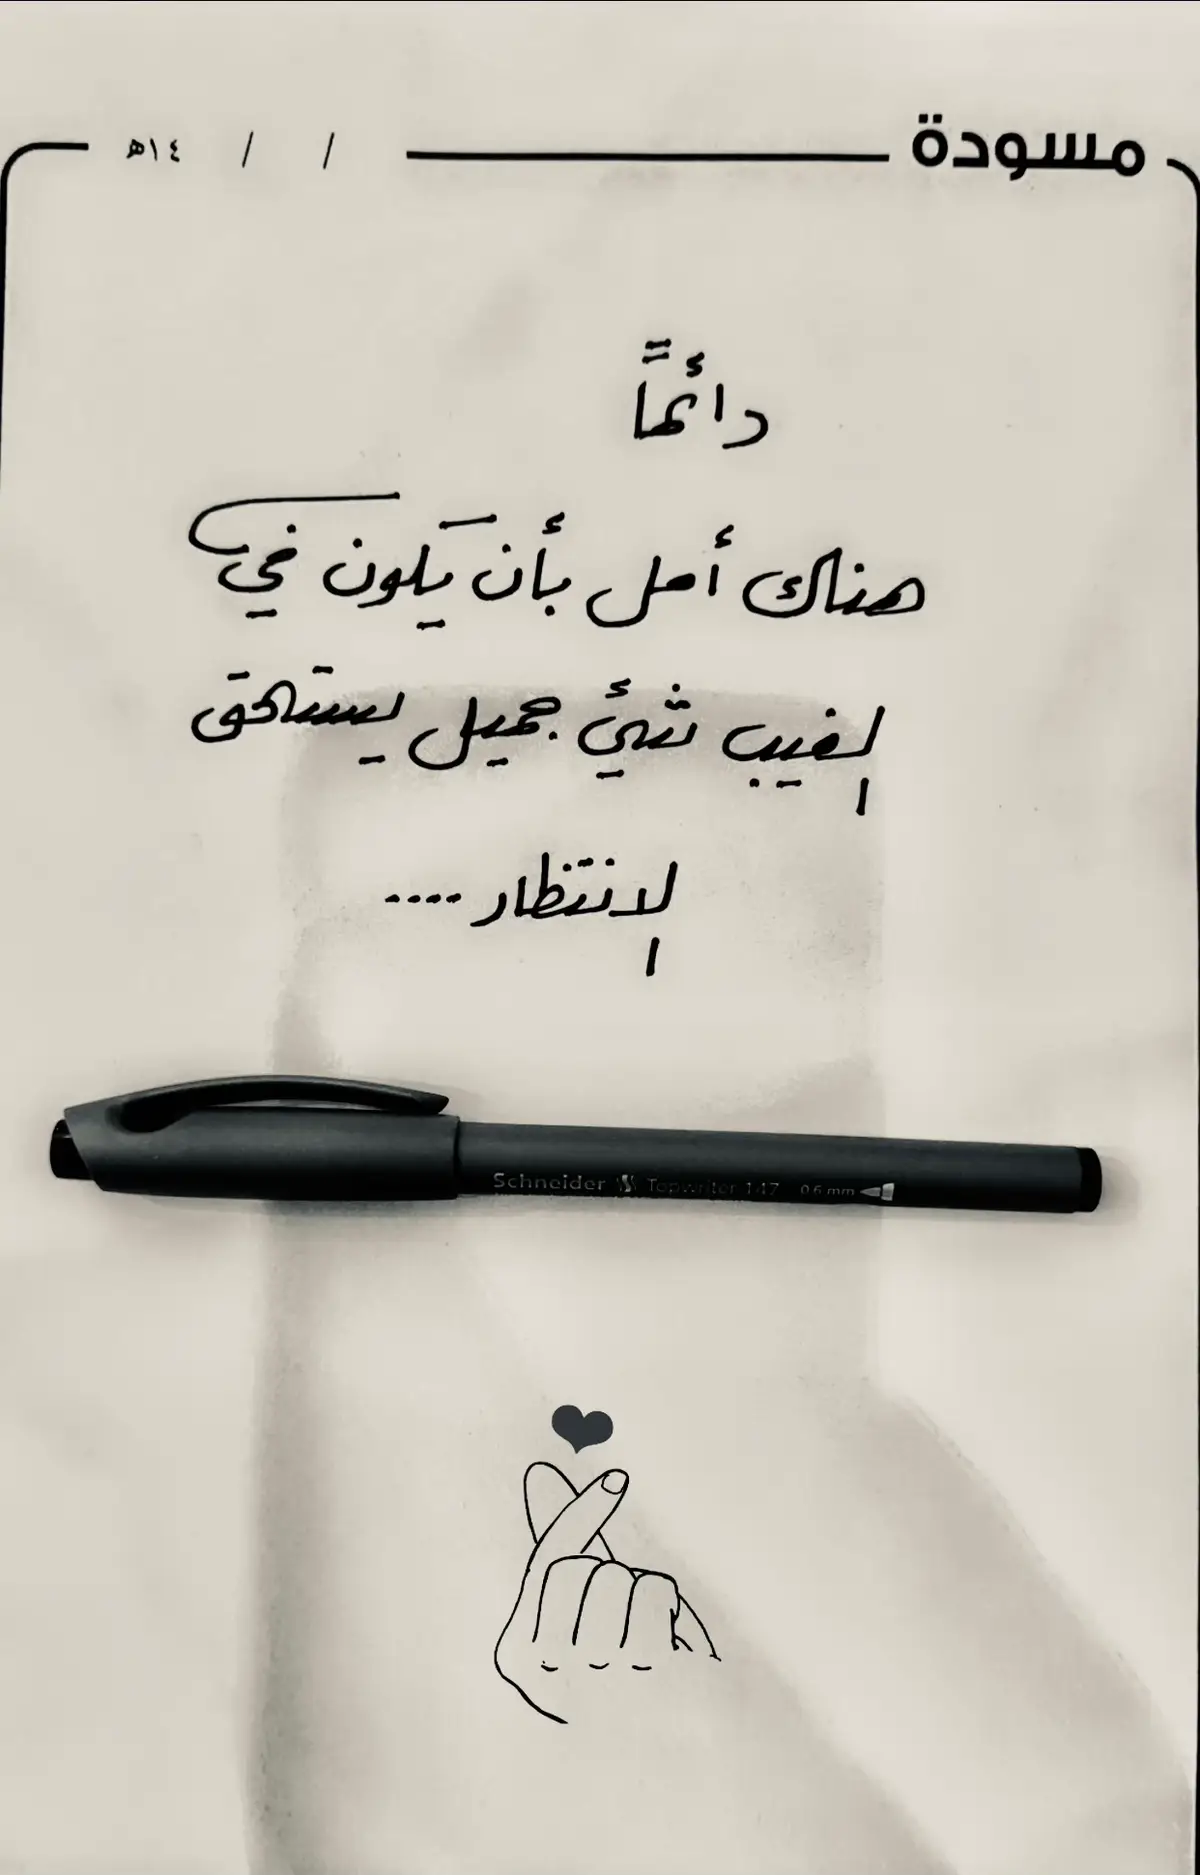 مسودة / / ١٤هـ
دائماً
هناك أمل بأن يكون في
الغيب شيئ جميل يستحق
الانتظار ....
Schneider Topwriter 147 0.6 mm